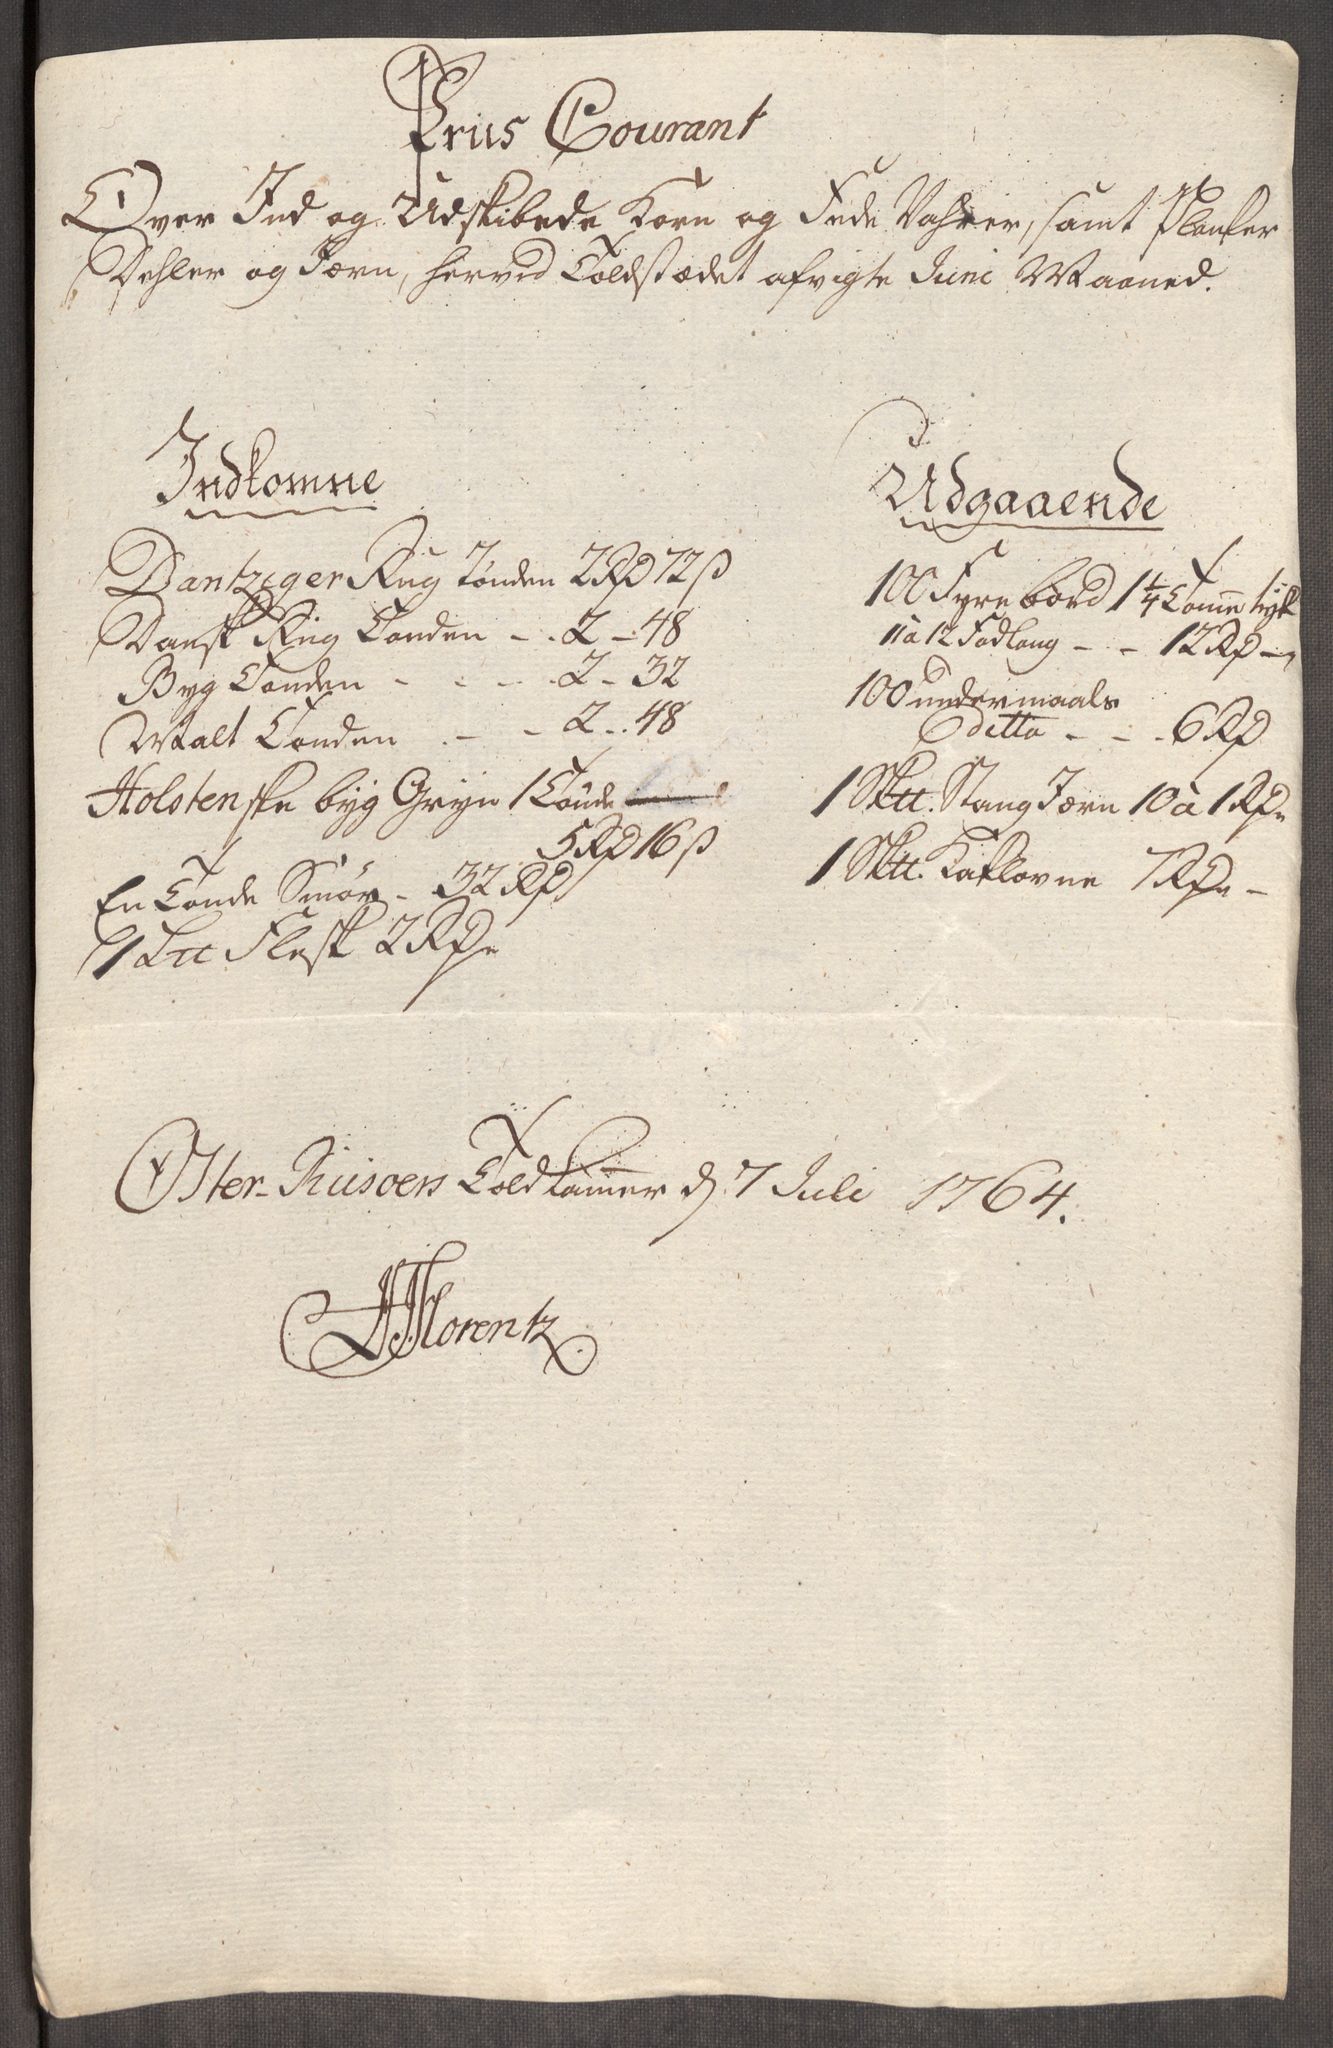 Priis Courant
Over Ind og Udskibede Korn og Fede Vahrer, samt Planker
Dehler og Jern, herved Toldstædet afvigte Juni Maaned.
Indkomne
Dantziger Rug Tønden 2 Rd 72 ß
Dansk Rug Tønden - . 2 - 48
Byg Tønden - - - . 2 - 32
Malt Tønden . - - 2 - . 48
Holstenske byg Gryn 1 Tønde
5 Rd 16 ß
En Tønde Smør - 32 Rd
1 L℔ Flesk 2 Rd
Udgaaende
100 Fyrrebord 1 1/4 Tomme tyk
11 a 12 Fod lang - - 12 Rd -
100 undermaals
ditto - - . 6 Rd
1 Sk℔. Stang Jern 10 a 1 Rd
1 Sk℔. Kaklovne 7 Rd -
Øster-Riisøers Toldkammer d. 7 Juli 1764.
Florentz